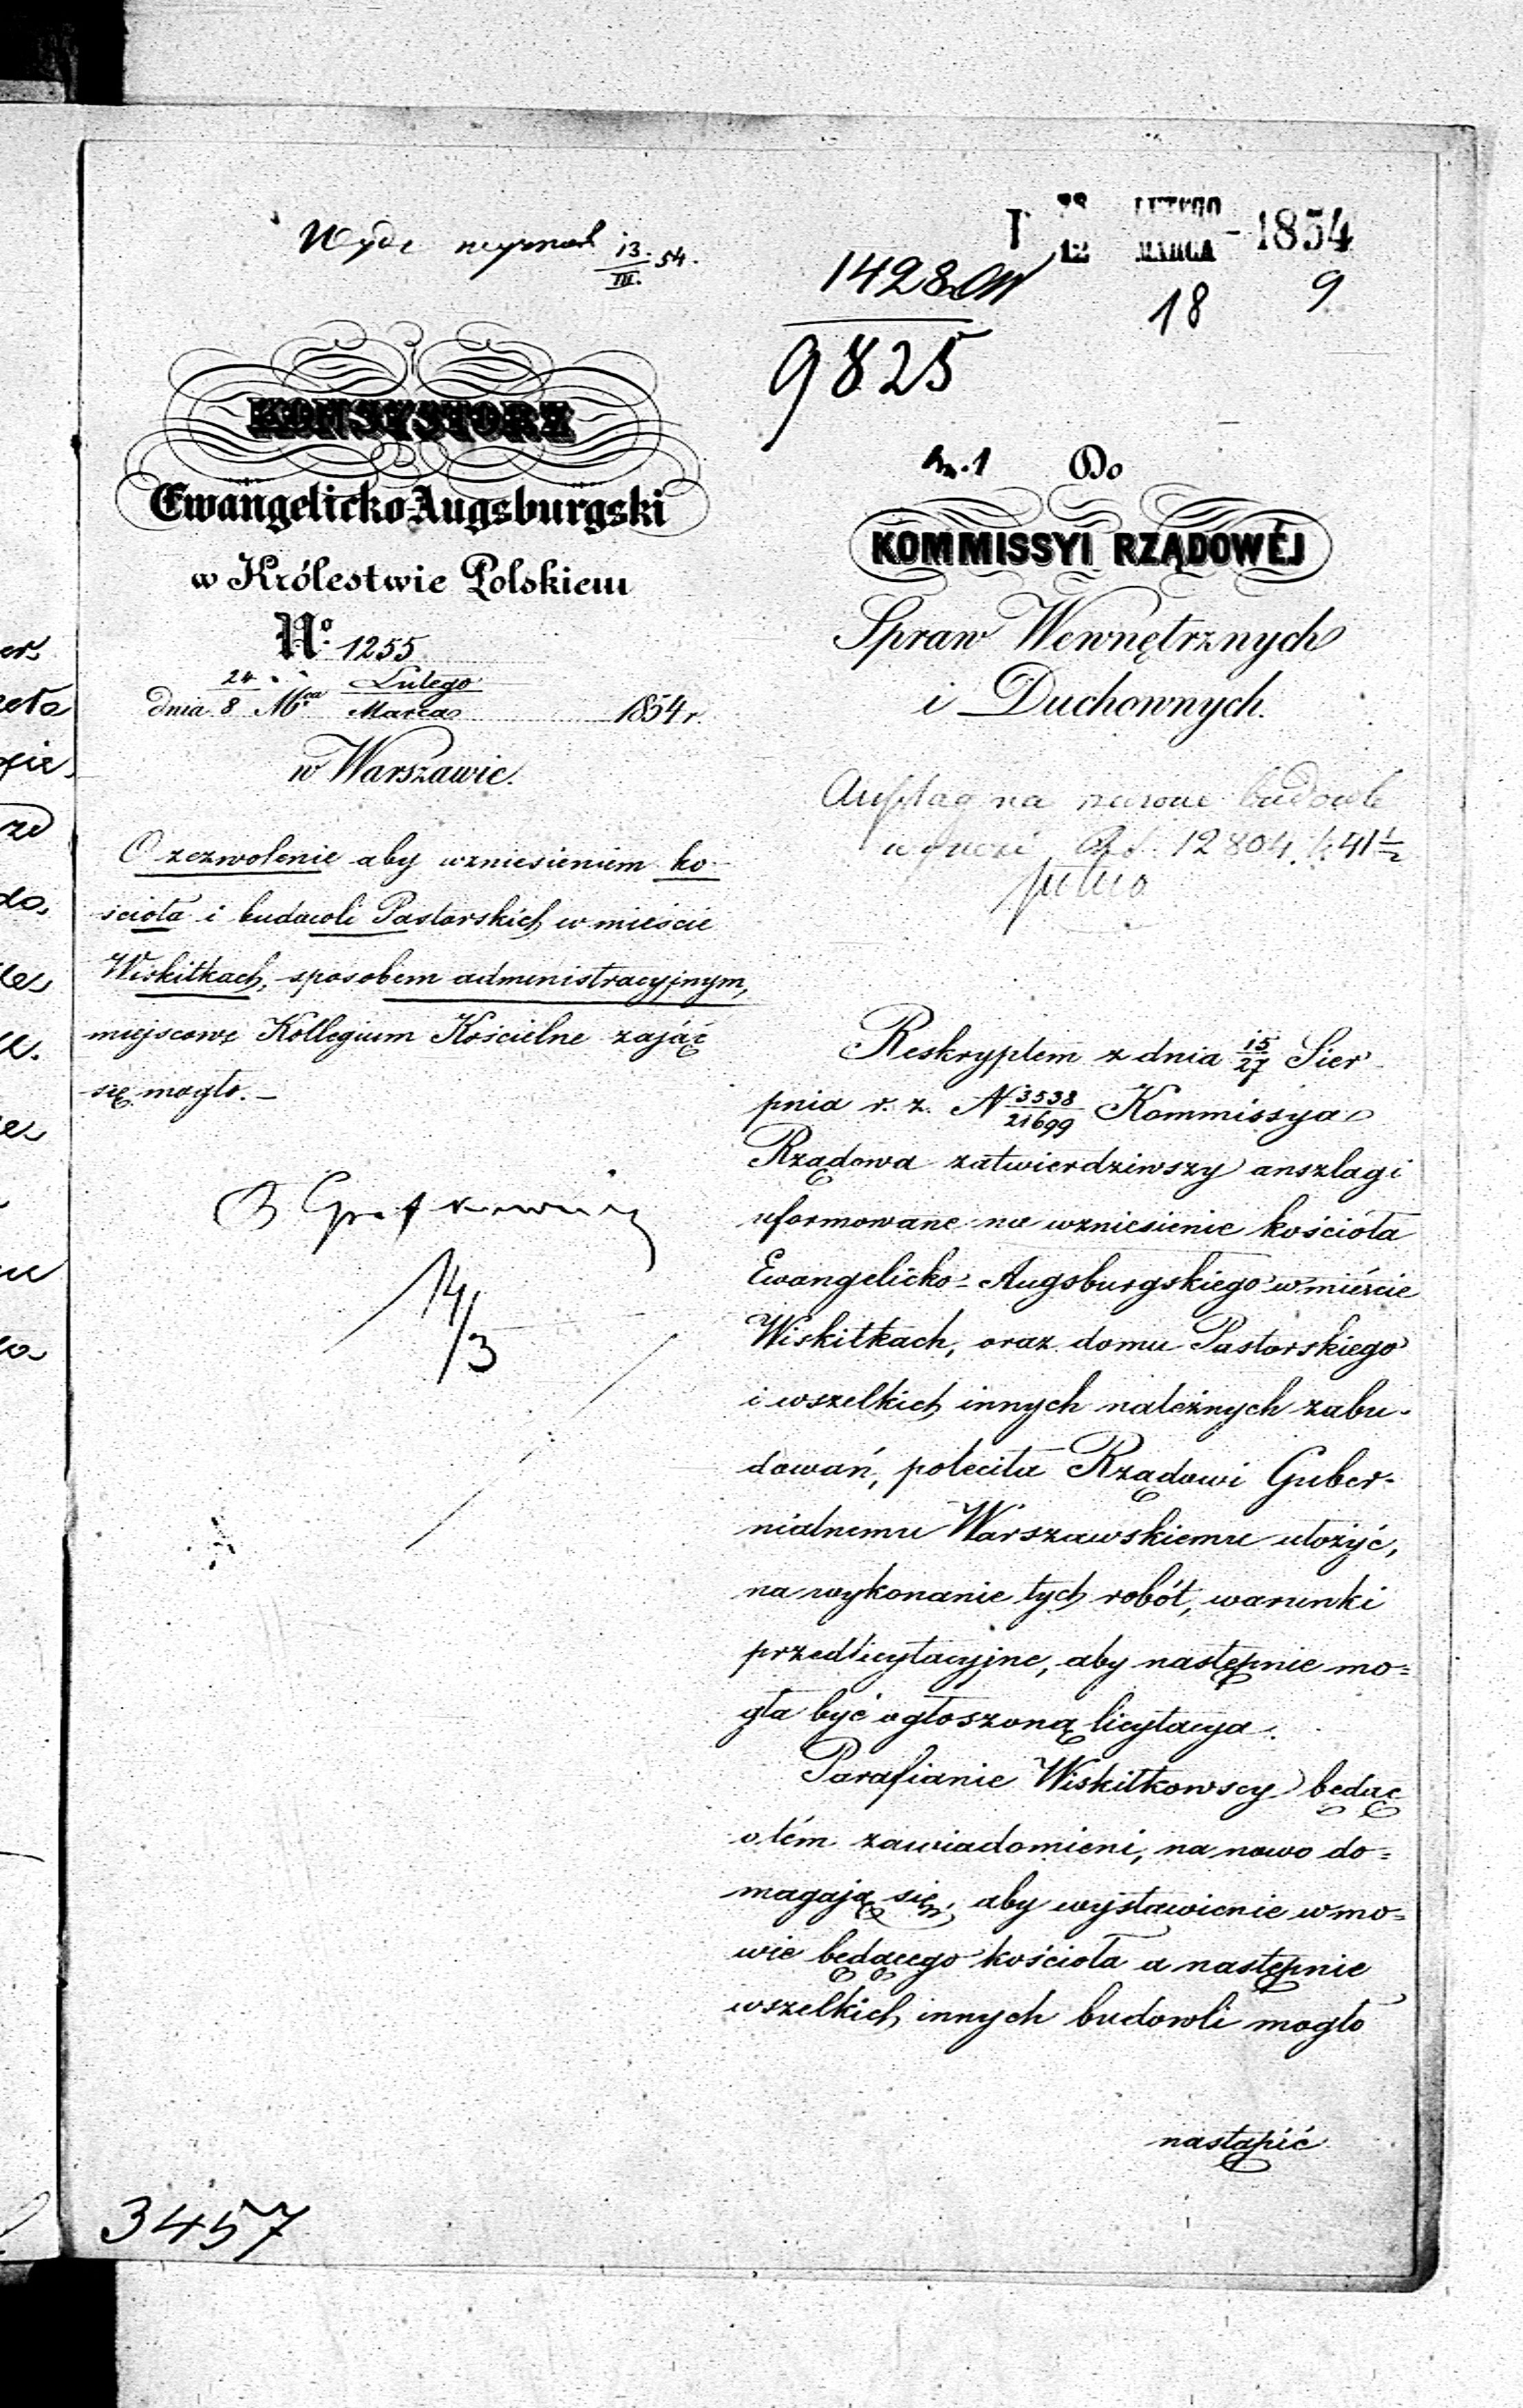 13/III. 54.
28 LUTEGO
12 MARCA - 1854
1428
9825
18
9
KONSYSTORZ
Ewangelicko-Augsburgski
w Królestwie Polskiem
No. 1255
dnia 24/8 Mca Lutego/Marca 1854 r.
w Warszawie.
O zezwolenie aby wzniesieniem ko-
ścioła i budowli Pastorskich w mieście
Wiskitkach, sposobem administracyjnym,
miejscowe Kollegium Kościelne zająć
się mogło. –
14/3
3457
Do
KOMMISSYI RZĄDOWÉJ
Spraw Wewnętrznych
i Duchownych.
na budowle
12804. 41½
Reskryptem z dnia 15/27 Sier-
pnia r. z. N 3538/21699 Kommissya
Rządowa zatwierdziwszy anszlagi
uformowane na wzniesienie kościoła
Ewangelicko-Augsburgskiego w mieście
Wiskitkach, oraz domu Pastorskiego
i wszelkich innych należnych zabu-
dowań, poleciła Rządowi Guber-
nialnemu Warszawskiemu ułożyć,
na wykonanie tych robót, warunki
przedlicytacyjne, aby następnie mo=
gła być ogłoszoną licytacya.
Parafianie Wiskitkowscy będąc
o tém zawiadomieni, na nowo do=
magają się, aby wystawienie w mo=
wie będącego kościoła a następnie
wszelkich innych budowli mogło
nastąpić